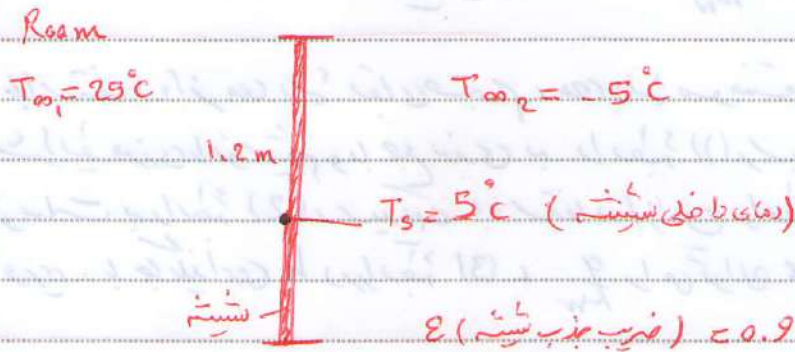 Room
T∞₁ = 25°C
T∞₂ = -5°C
1.2 m
Ts = 5°C (دمای داخلی شیشه)
شیشه
ε (ضریب جذب شیشه) = 0.9